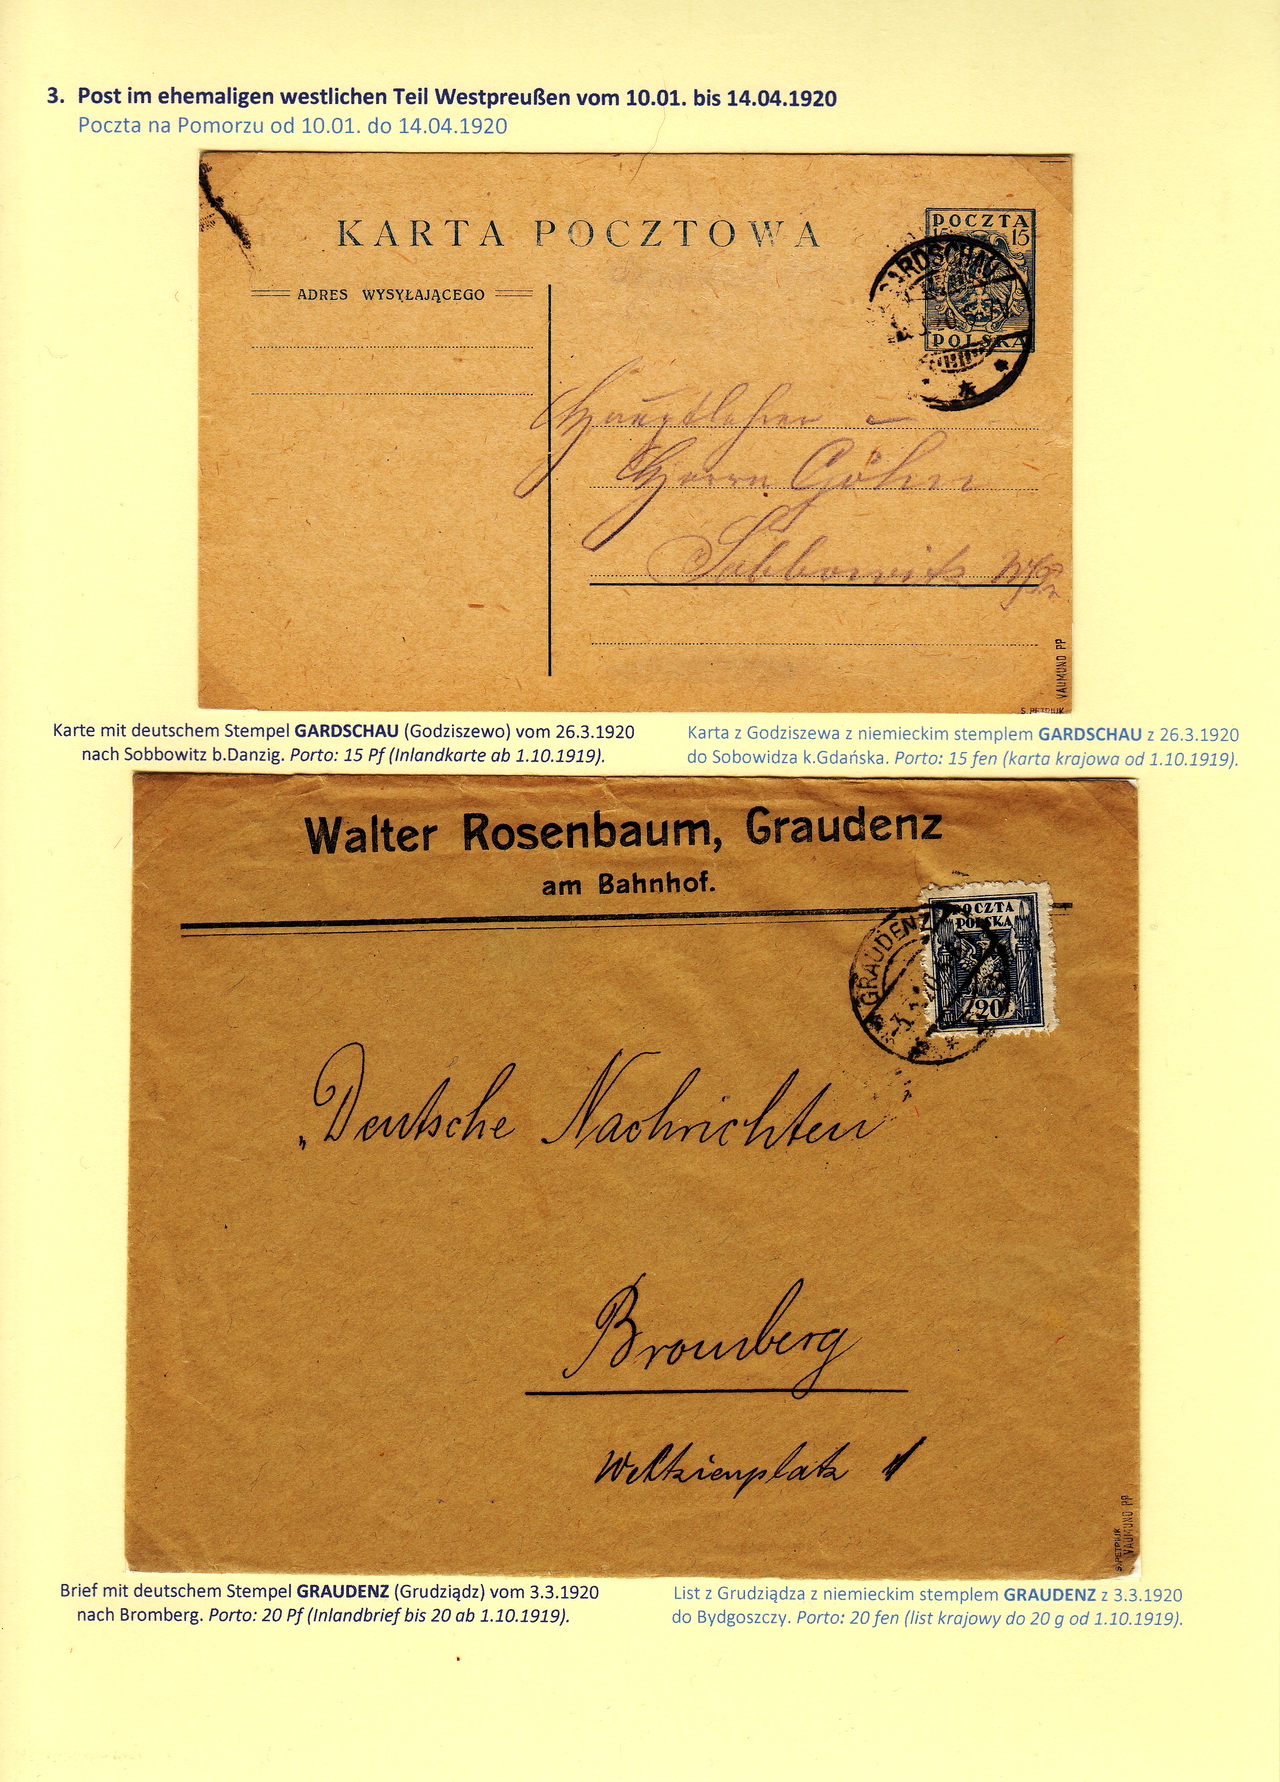 3. Post im ehemaligen westlichen Teil Westpreußen vom 10.01. bis 14.04.1920
Poczta na Pomorzu od 10.01. do 14.04.1920
KARTA POCZTOWA
POCZTA
15 15
POLSKA
GARDSCHAU
ADRES WYSYŁAJĄCEGO
Hauptlehrer
Herrn Göhn
Sobbowitz Wpr
VAUMUND PP
S. PETRIUK
Karte mit deutschem Stempel GARDSCHAU (Godziszewo) vom 26.3.1920
nach Sobbowitz b.Danzig. Porto: 15 Pf (Inlandkarte ab 1.10.1919).
Karta z Godziszewa z niemieckim stemplem GARDSCHAU z 26.3.1920
do Sobowidza k.Gdańska. Porto: 15 fen (karta krajowa od 1.10.1919).
Walter Rosenbaum, Graudenz
am Bahnhof.
POCZTA
POLSKA
20
GRAUDENZ
„Deutsche Nachrichten
Bromberg
Weltzienplatz 1
S. PETRIUK
VAUMUND PP
Brief mit deutschem Stempel GRAUDENZ (Grudziądz) vom 3.3.1920
nach Bromberg. Porto: 20 Pf (Inlandbrief bis 20 ab 1.10.1919).
List z Grudziądza z niemieckim stemplem GRAUDENZ z 3.3.1920
do Bydgoszczy. Porto: 20 fen (list krajowy do 20 g od 1.10.1919).